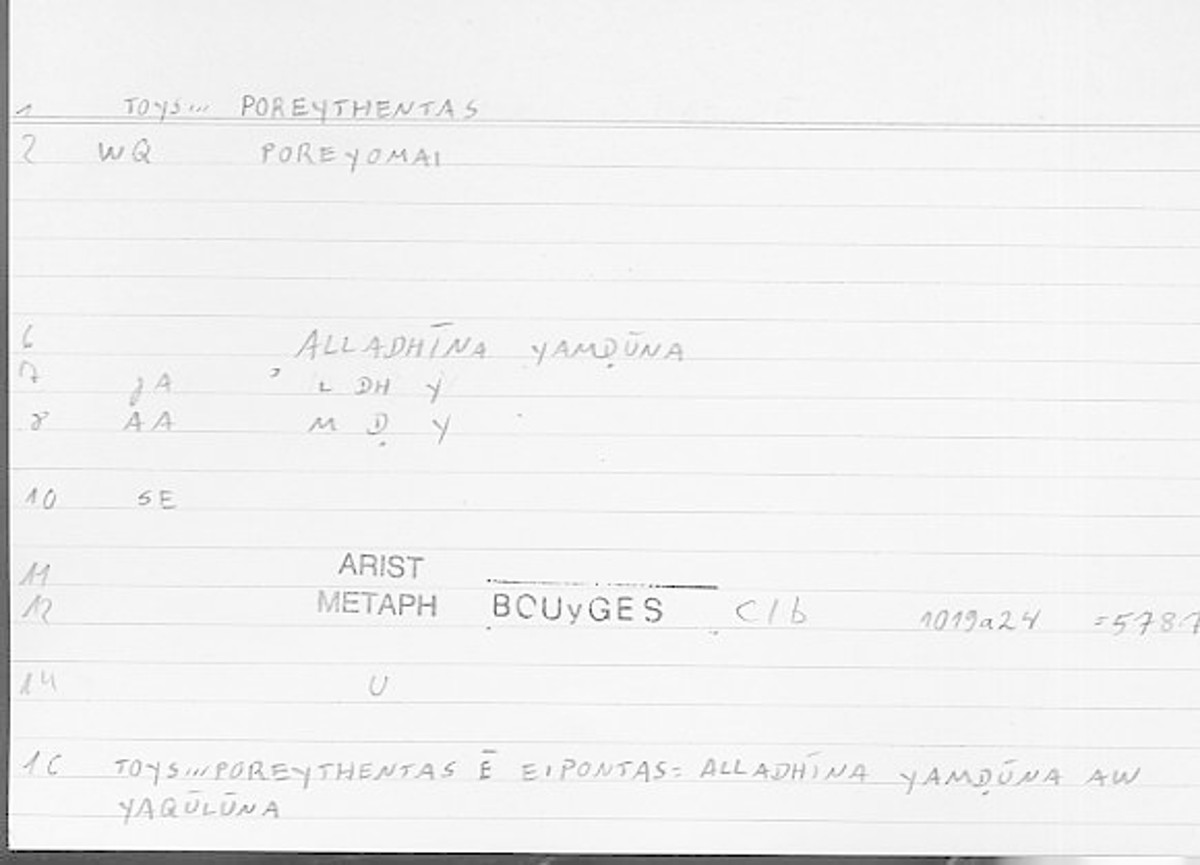 1 TOYS... POREYTHENTAS
2 WQ POREYOMAI
6 ALLADHĪNA YAMḌŪNA
7 JA ' L DH Y
8 AA M Ḍ Y
10 SE
11 ARIST
12 METAPH BOUYGES C/b 1019a24 =5787
14 U
16 TOYS...POREYTHENTAS Ē EIPONTAS= ALLADHĪNA YAMḌŪNA AW
YAQŪLŪNA